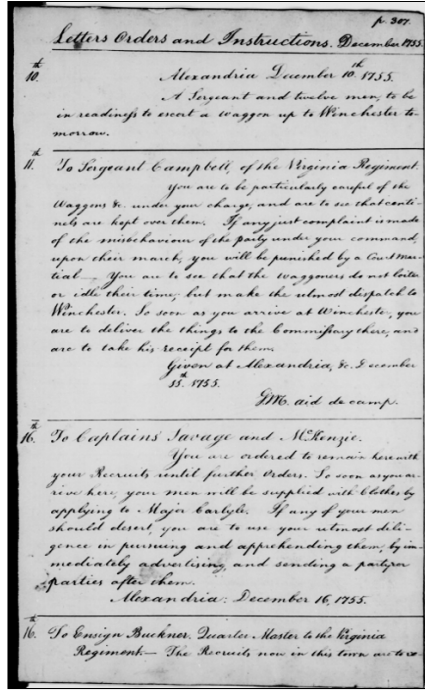 p. 307.
Letters Orders and Instructions. December 1755.
10.th Alexandria December 10.th 1755.
A Sergeant and twelve men, to be
in readiness to escort a waggon up to Winchester to-
morrow.
11.th To Sergeant Campbell, of the Virginia Regiment.
You are to be particularly careful of the
Waggons &c under your charge, and are to see that centi-
nels are kept over them. If any just complaint is made
of the misbehaviour of the party under your command,
upon their march, you will be punished by a Court Mar-
tial — You are to see that the waggoners do not loiter
or idle their time, but make the utmost despatch to
Winchester. So soon as you arrive at Winchester, you
are to deliver the things to the Commissary there, and
are to take his receipt for them.
Given at Alexandria, &c. December
15.th 1755.
G.M. aid de camp.
16.th To Captains Savage and McKenzie.
You are ordered to remain here with
your Recruits until further Orders. So soon as you ar-
rive here, your men will be supplied with Clothes by
applying to Major Carlyle. If any of your men
should desert, you are to use your utmost dili-
gence in pursuing and apprehending them, by im-
mediately advertising, and sending a party or
parties after them.
Alexandria: December 16, 1755.
16.th To Ensign Buckner. Quarter Master to the Virginia
Regiment. — The Recruits now in this town are to re-